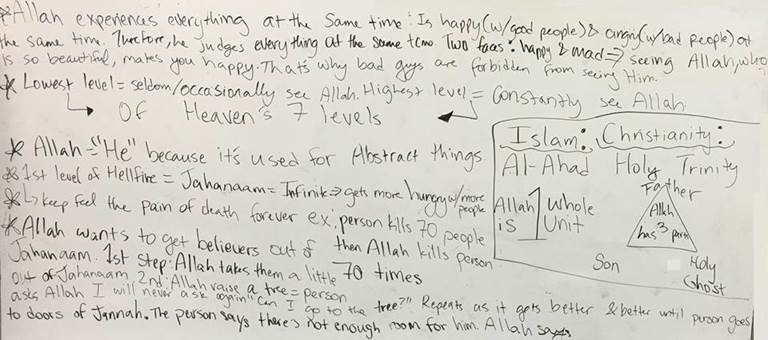 *Allah experiences everything at the same time: Is happy (w/good people) & angry (w/bad people) at
the same time. Therefore, he judges everything at the same time. Two faces: happy & mad => seeing Allah, who
is so beautiful, makes you happy. That's why bad guys are forbidden from seeing Him.
* Lowest level = seldom/occasionally see Allah. Highest level = Constantly see Allah
Of Heaven's 7 levels
* Allah = "He" because it's used for Abstract things.
* 1st level of Hellfire = Jahanaam = Infinite => gets more hungry w/more people
* ↳ keep feel the pain of death forever ex. person kills 70 people
then Allah kills person
70 times
* Allah wants to get believers out of
Jahanaam. 1st step: Allah takes them a little
out of Jahanaam 2nd: Allah raise a tree = person
asks Allah I will never ask again "can I go to the tree?" Repeats as it gets better & better until person goes
to doors of Jannah. The person says there's not enough room for him. Allah says
Islam: Christianity:
Al-Ahad Holy Trinity
Allah is 1 Whole Unit
Father
Allah
has 3 parts
Son Holy Ghost